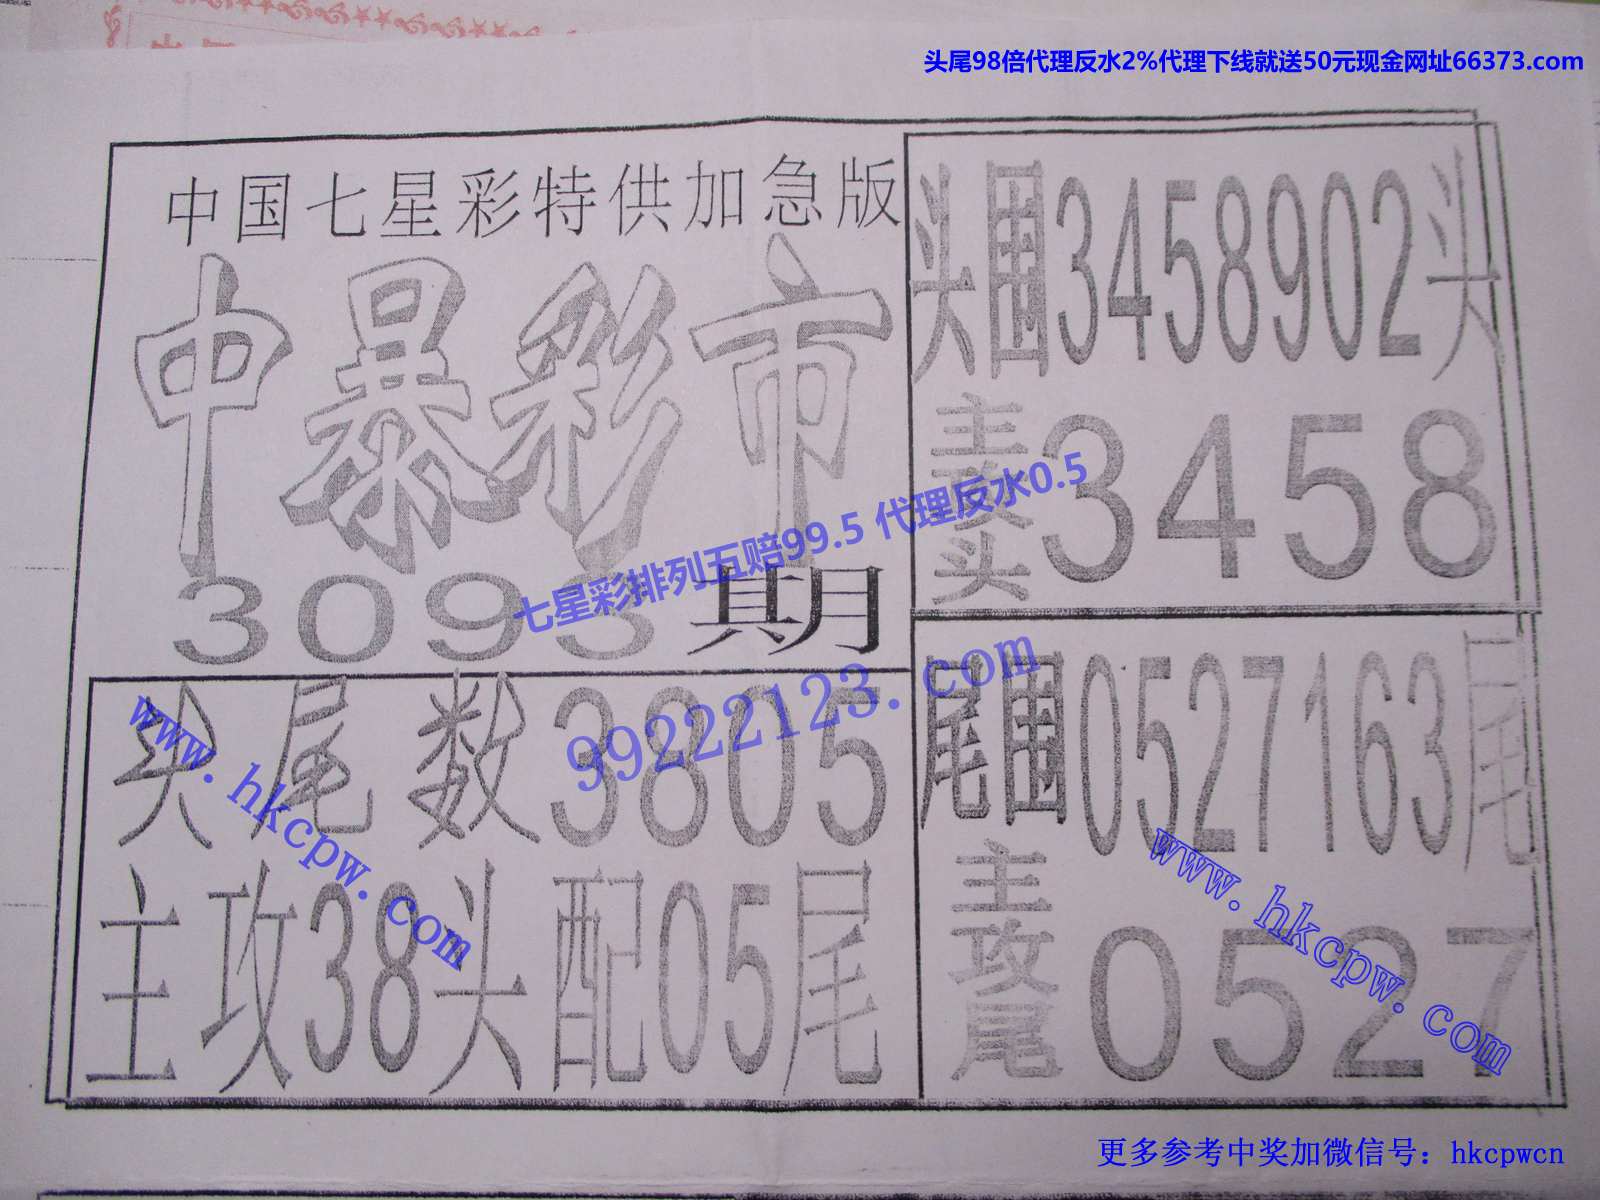 头尾98倍代理反水2%代理下线就送50元现金网址66373.com
中国七星彩特供加急版
中暴彩市
3093期
头尾数3805
主攻38头配05尾
头围3458902头
主攻头3458
尾围0527163尾
主攻尾0527
七星彩排列五赔99.5 代理反水0.5
99222123.com
www.hkcpw.com
www.hkcpw.com
更多参考中奖加微信号：hkcpwcn